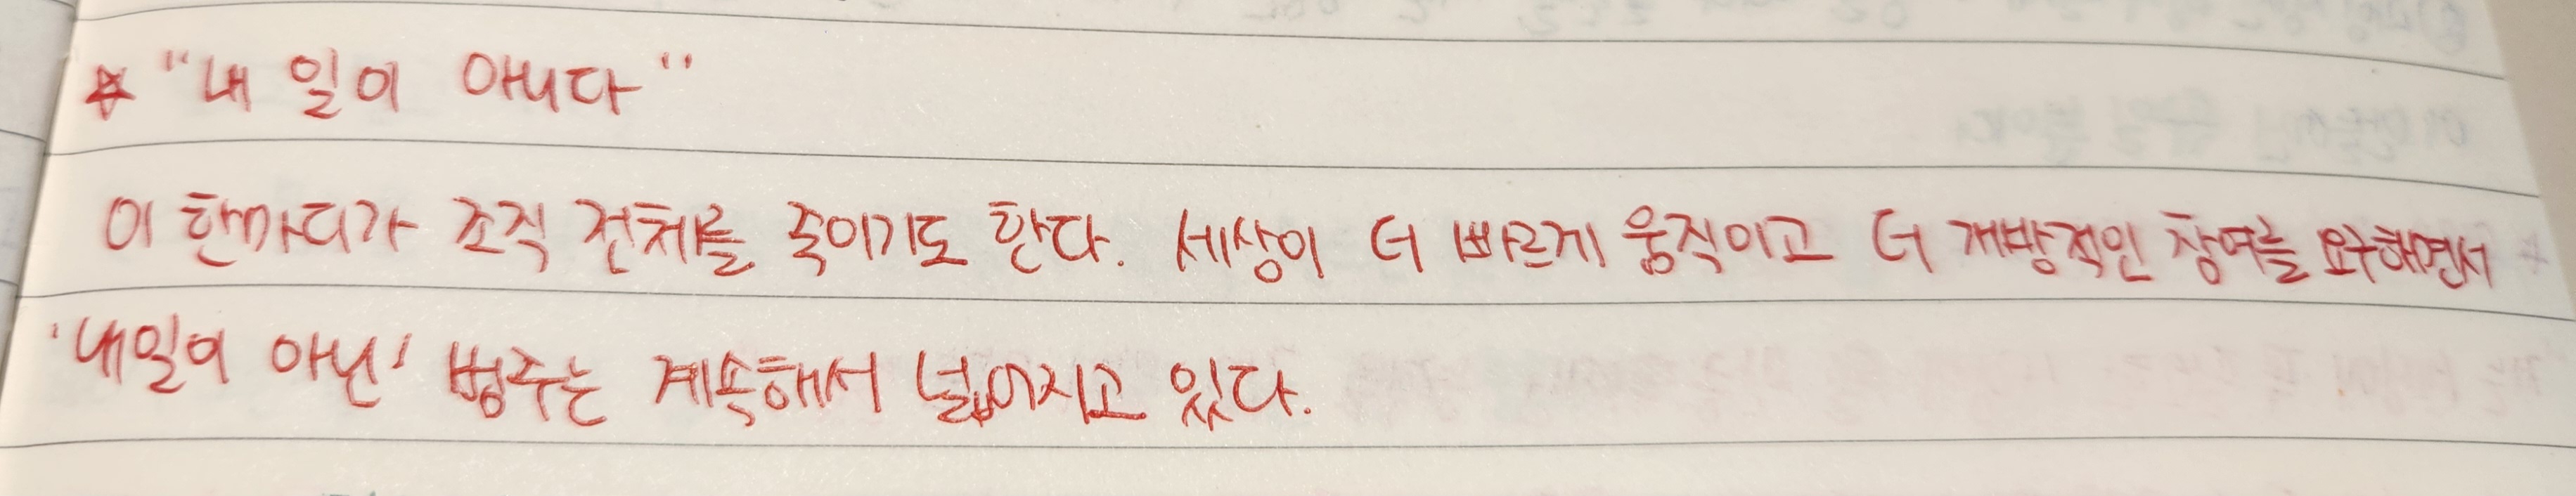 ☆ "내 일이 아니다"
이 한마디가 조직 전체를 죽이기도 한다. 세상이 더 빠르게 움직이고 더 개방적인 참여를 요구하면서
'내일이 아닌' 범주는 계속해서 넓어지고 있다.